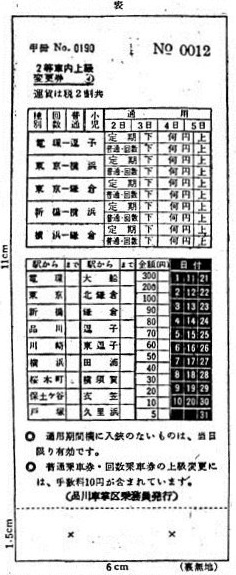 表
甲冊 No.0190 No 0012
2等車内上級
変更券
運賃は税2割共
種別 回数 普通 小児 通用
2日 3日 4日 5日
電環―逗子 定期 下 何円 上
普通・回数 下 何円 上
東京―横浜 定期 下 何円 上
普通・回数 下 何円 上
東京―鎌倉 定期 下 何円 上
普通・回数 下 何円 上
新橋―横浜 定期 下 何円 上
普通・回数 下 何円 上
横浜―鎌倉 定期 下 何円 上
普通・回数 下 何円 上
駅から まで 駅から まで 金額(円) 日付
電環 大船 300 1 11 21
東京 北鎌倉 200 2 12 22
新橋 鎌倉 100 3 13 23
品川 逗子 90 4 14 24
川崎 東逗子 80 5 15 25
横浜 田浦 70 6 16 26
桜木町 横須賀 60 7 17 27
保土ケ谷 衣笠 50 8 18 28
戸塚 久里浜 40 9 19 29
30 10 20 30
20 31
10
5
◎ 通用期間欄に入鋏のないものは、当日
限り有効です。
◎ 普通乗車券・回数乗車券の上級変更に
は、手数料10円が含まれています。
(品川車掌区乗務員発行)
× ×
11cm
1.5cm
6cm
(裏無地)